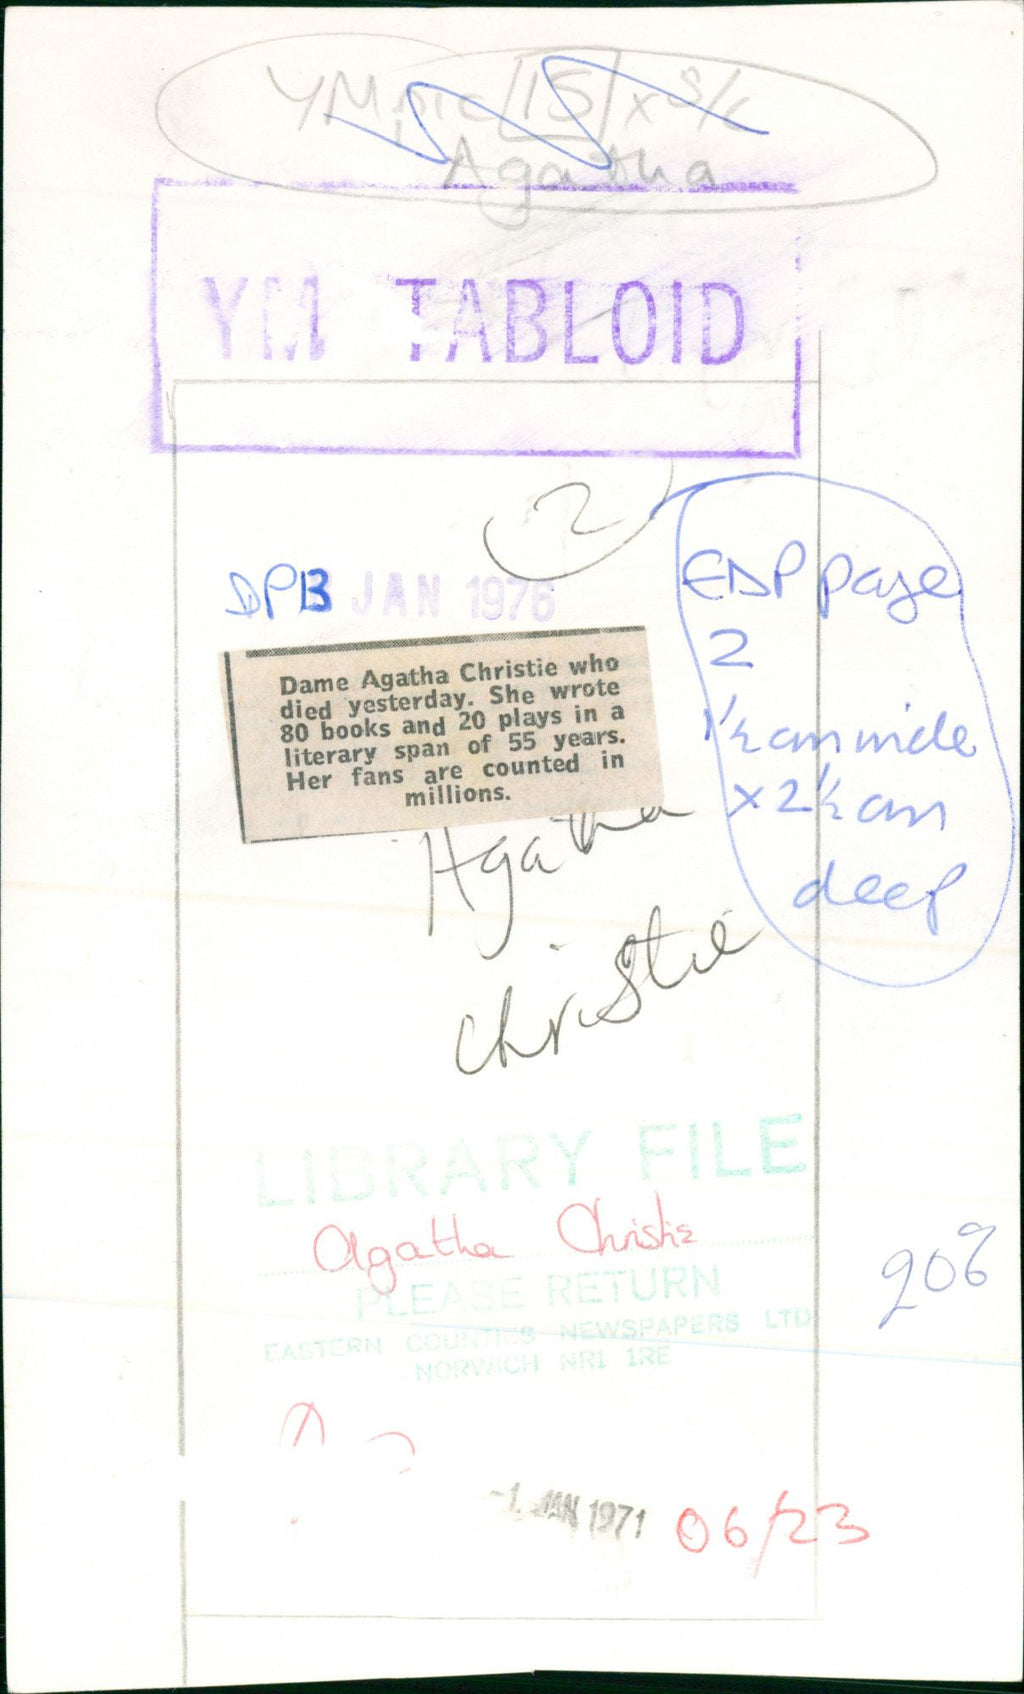 YM pic /15/ x S/c
Agatha
YM TABLOID
2
EDP page
2
1½ cm wide
x 2½ cm
deep
DPB JAN 1976
Dame Agatha Christie who
died yesterday. She wrote
80 books and 20 plays in a
literary span of 55 years.
Her fans are counted in
millions.
Agatha
Christie
LIBRARY FILE
Agatha Christie
PLEASE RETURN
EASTERN COUNTIES NEWSPAPERS LTD
NORWICH NR1 1RE
-1. JAN 1971
06/23